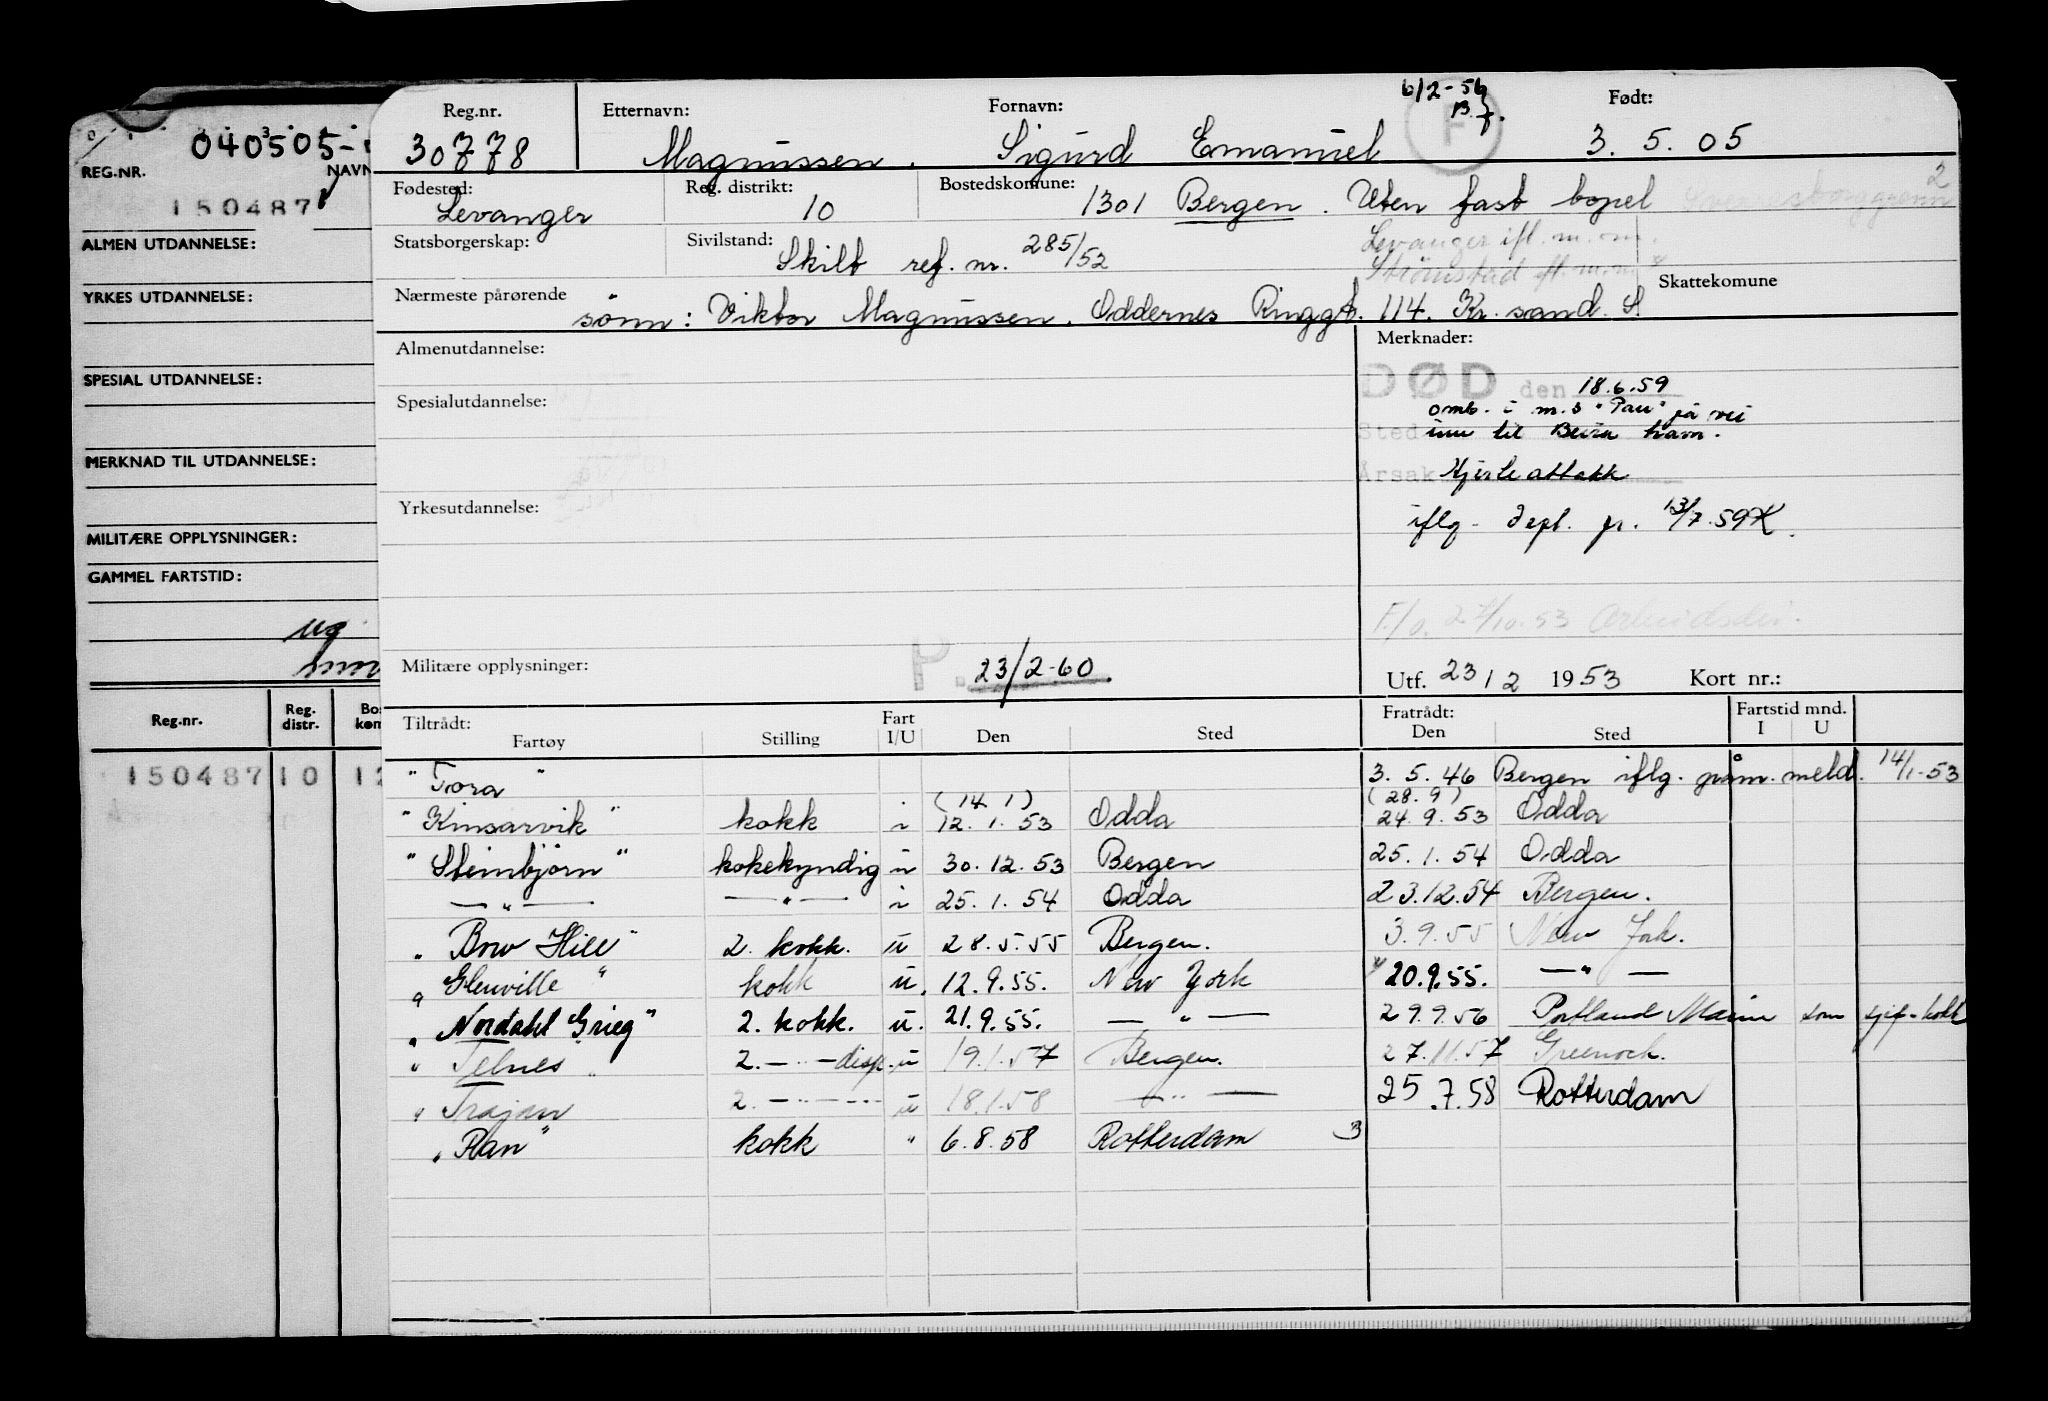 Reg.nr. Etternavn: Fornavn: 6/2-56 Født:
30778 Magnussen. Sigurd Emanuel F 3. 5. 05
Fødested: Reg. distrikt: Bostedskomune: 2
Levanger 10 1301 Bergen. Uten fast bopel
Statsborgerskap: Sivilstand: Levanger ifl. m. om.
Skilt ref. nr. 285/52 Strömstad
Nærmeste pårørende Skattekomune
sönn: Viktor Magnussen. Oddernes Ringgt. 114. Kr. sand. S.
Almenutdannelse: Merknader:
DØD den 18.6.59
Spesialutdannelse: omb. i m.s "Ran" på vei
Sted inn til Beira havn.
Årsak Hjerteattakk
Yrkesutdannelse: iflg. Dept. pr. 13/7.59
F/o. 27/10.53
Militære opplysninger: P. 23/2-60. Utf. 23/2 1953 Kort nr.:
Tiltrådt: Fart Fratrådt: Fartstid mnd.
Fartøy Stilling I/U Den Sted Den Sted I U
"Tora" 3. 5. 46 Bergen iflg. påm. meld. 14/1-53
(14.1) (28.9)
"Kinsarvik" kokk i 12. 1. 53 Odda 24. 9. 53 Odda
"Steinbjörn" kokekyndig i 30. 12. 53 Bergen 25. 1. 54 Odda
— " — — " — i 25. 1. 54 Odda 23.12.54 Bergen.
"Bow Hill" 2. kokk. u 28. 5. 55 Bergen. 3. 9. 55 New York.
"Glenville" kokk u. 12. 9. 55. New York 20.9.55. — " —
"Nordahl Grieg" 2. kokk. u. 21. 9. 55. — " — 29.9.56 Portland Maine som sjef-kokk
"Telnes" 2. — " — disp. u 19.1.57 Bergen. 27.11.57 Greenock.
"Trajan 2. — " — u 18.1.58 — " — 25.7.58 Rotterdam
"Ran" kokk " 6. 8. 58 Rotterdam
040505-
REG.NR. NAVN
150487
ALMEN UTDANNELSE:
YRKES UTDANNELSE:
SPESIAL UTDANNELSE:
MERKNAD TIL UTDANNELSE:
MILITÆRE OPPLYSNINGER:
GAMMEL FARTSTID:
Reg.nr. Reg. distr. Bo kom
150487 10 12